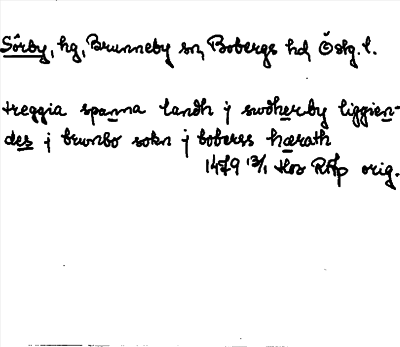 Sörby, hg, Brunneby sn, Bobergs hd, Östg. l.
treggia spanna landh j swdherby liggien-
des j brwnbo sokn j boberss hærath
1479 13/1 Hov RAp orig.